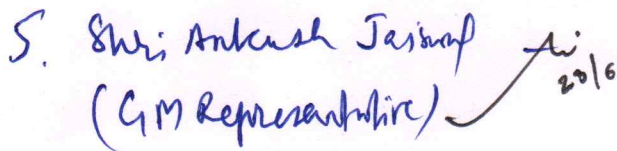 5. Shri Ankush Jaiswal
(GM Representative)
28/6